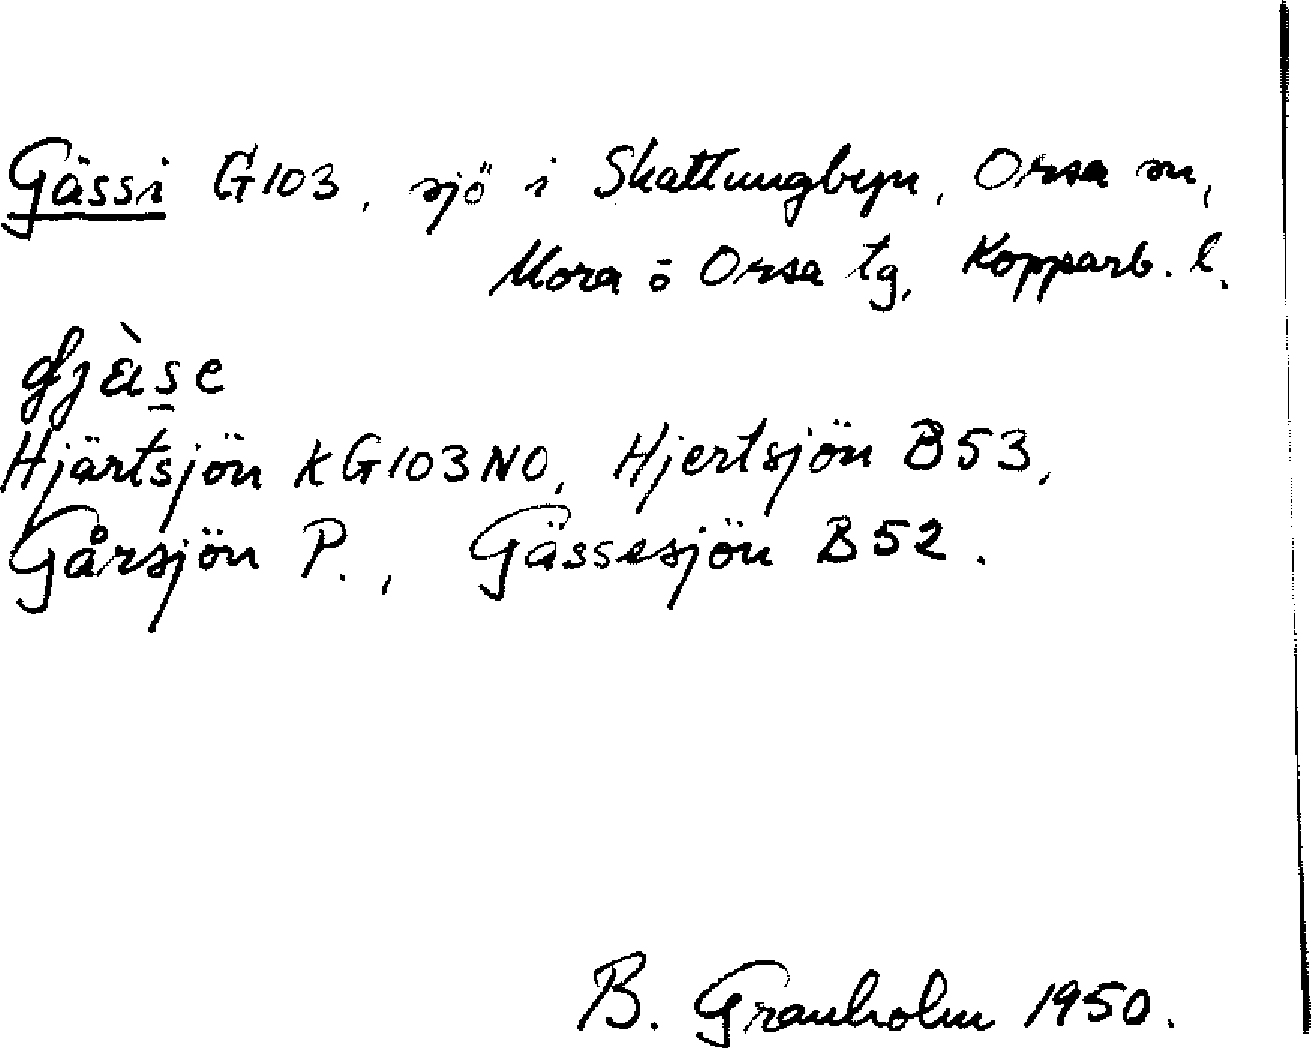 Gässi G103, sjö i Skattungbyn, Orsa sn,
Mora o Orsa tg, Kopparb. l.
Hjärtsjön kG103NO, Hjertsjön B53,
Gårsjön P., Gässesjön B52.
B. Granholm 1950.